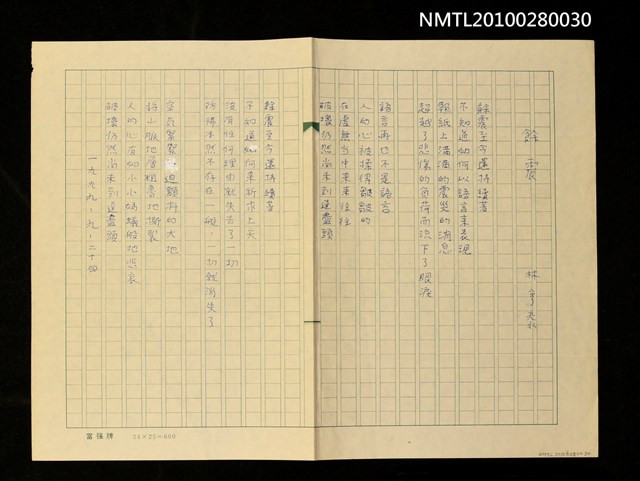 NMTL20100280030
餘震
林亨泰
餘震至今還持續著
不知道如何以語言來表現
報紙上滿滿的震災的消息
超越了悲傷的負荷而流下了眼淚
語言再也不是語言
人的心被揉得皺皺的
在虛無当中來來往往
破壞仍然尚未到達盡頭
餘震至今還持續著
不知道如何來祈求上天
沒有任何理由就失去了一切
彷彿本然不存在一般,一切就消失了
空氣緊緊迫顫抖的大地
將山脈地層粗魯地撕裂
人的心有如小小螞蟻般地悲哀
破壞仍然尚未到達盡頭
一九九九、九、二十四
富強牌 24×25=600